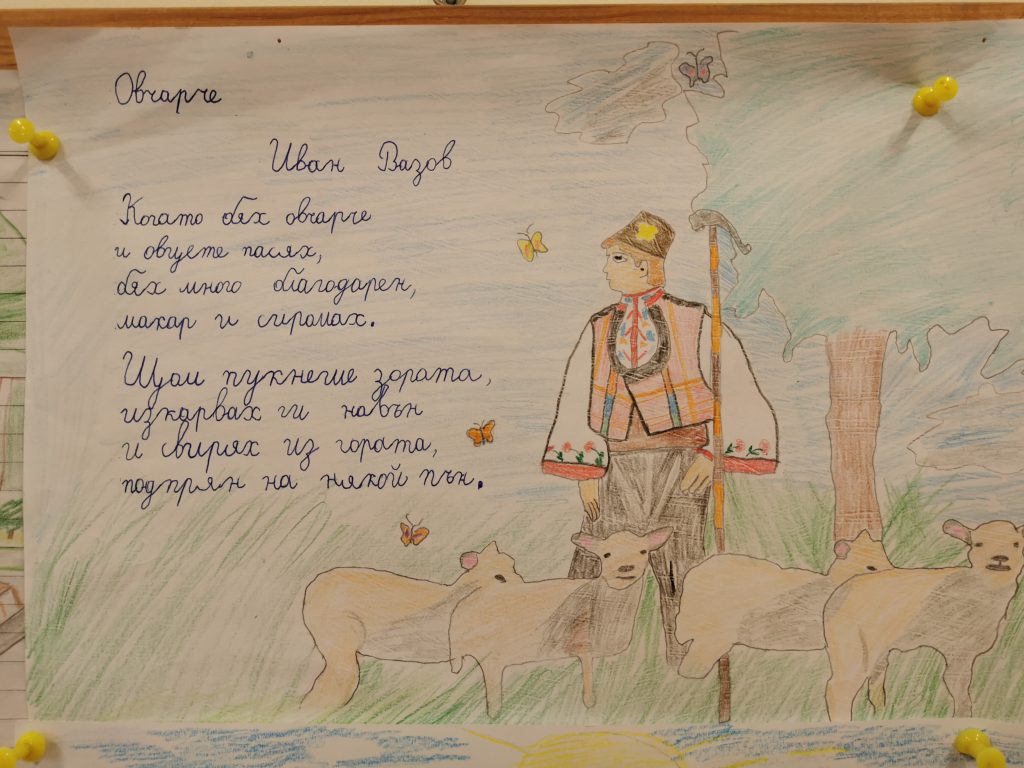 Овчарче
Иван Вазов
Когато бях овчарче
и овцете пасях,
бях много благодарен,
макар и сиромах.
Щом пукнеше зората,
изкарвах ги навън
и свирях из гората,
подпрян на някой пън.